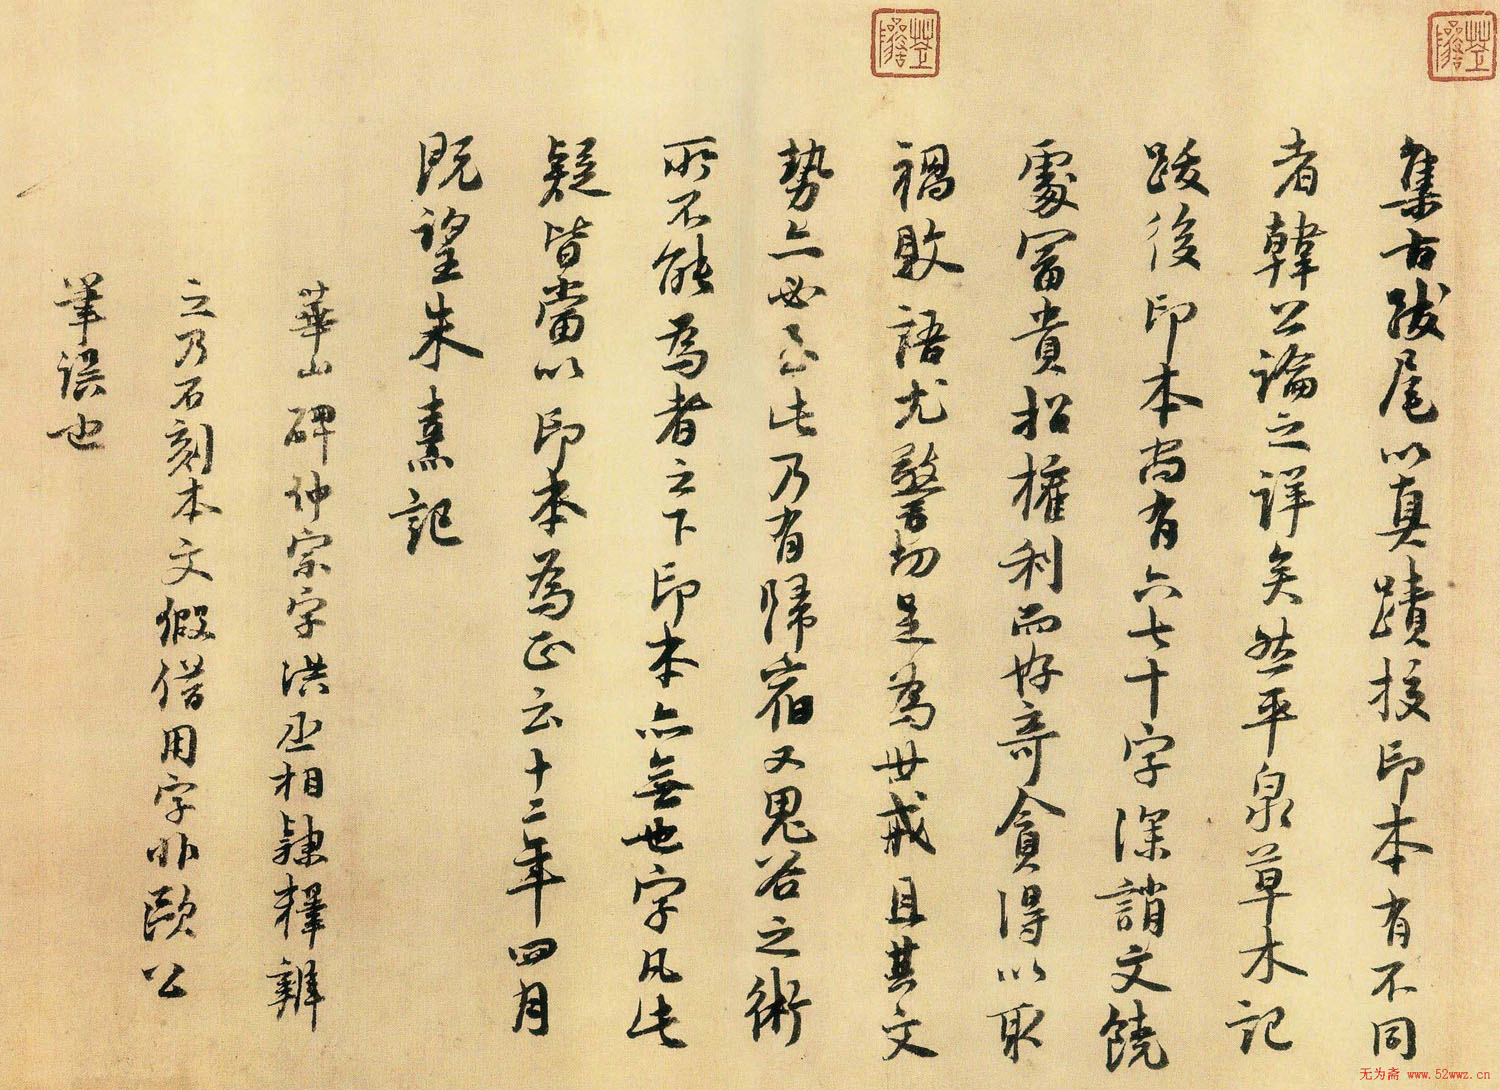 集古跋尾以真蹟校印本有不同
者韓公論之詳矣然平泉草木記
跋後印本尚有六七十字深誚文饒
處冨貴招權利而好奇貪得以取
禍敗語尤警切足為世戒且其文
勢亦必至此乃有歸宿又鬼谷之術
所不能為者之下印本亦無也字凡此
疑皆當以印本為正云十二年四月
既望朱熹記
華山碑仲宗字洪丞相隸釋辨
之乃石刻本文假借用字非歐公
筆誤也
无为斋 www.52wwz.cn